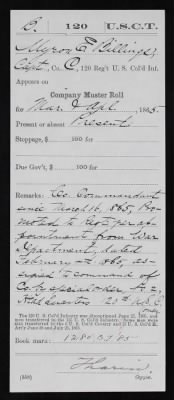 B. 120 U.S.C.T.
Myron E Billings,
Capt., Co. C, 120 Reg't U. S. Col'd Inf.
Appears on
Company Muster Roll
for Mar. & Apl., 1865.
Present or absent Present
Stoppage, $ 100 for
Due Gov't, $ 100 for
Remarks: Co. Commandant
since March 16, 1865, Pro-
moted to Capt. per ap-
pointment from War
Department, dated
February 1865, as-
signed to command of
Co. by special order No. 2,
Head Quarters 120th U.S.C.
Book mark:
(358) Copyist.